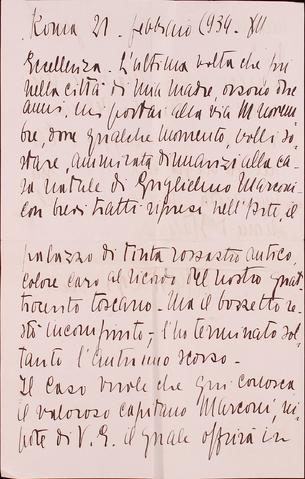 Roma 21. febbraio 1934. XII
Eccellenza. L'ultima volta che fui
nella città di mia madre, orsono due
anni, mi portai alla via IV novem-
bre, dove qualche momento, volli so-
stare, ammirata dinanzi alla ca-
sa natale di Guglielmo Marconi.
con brevi tratti ripresi nell'Arte, il
palazzo di tinta rossastro antico,
colore caro al ricordo del nostro quat-
trocento toscano. Ma il bozzetto re-
stò incompiuto, l'ho terminato sol-
tanto l'autunno scorso.
Il caso vuole che qui conosca
il valoroso capitano Marconi, ni-
pote di V. E. il quale offrirà in